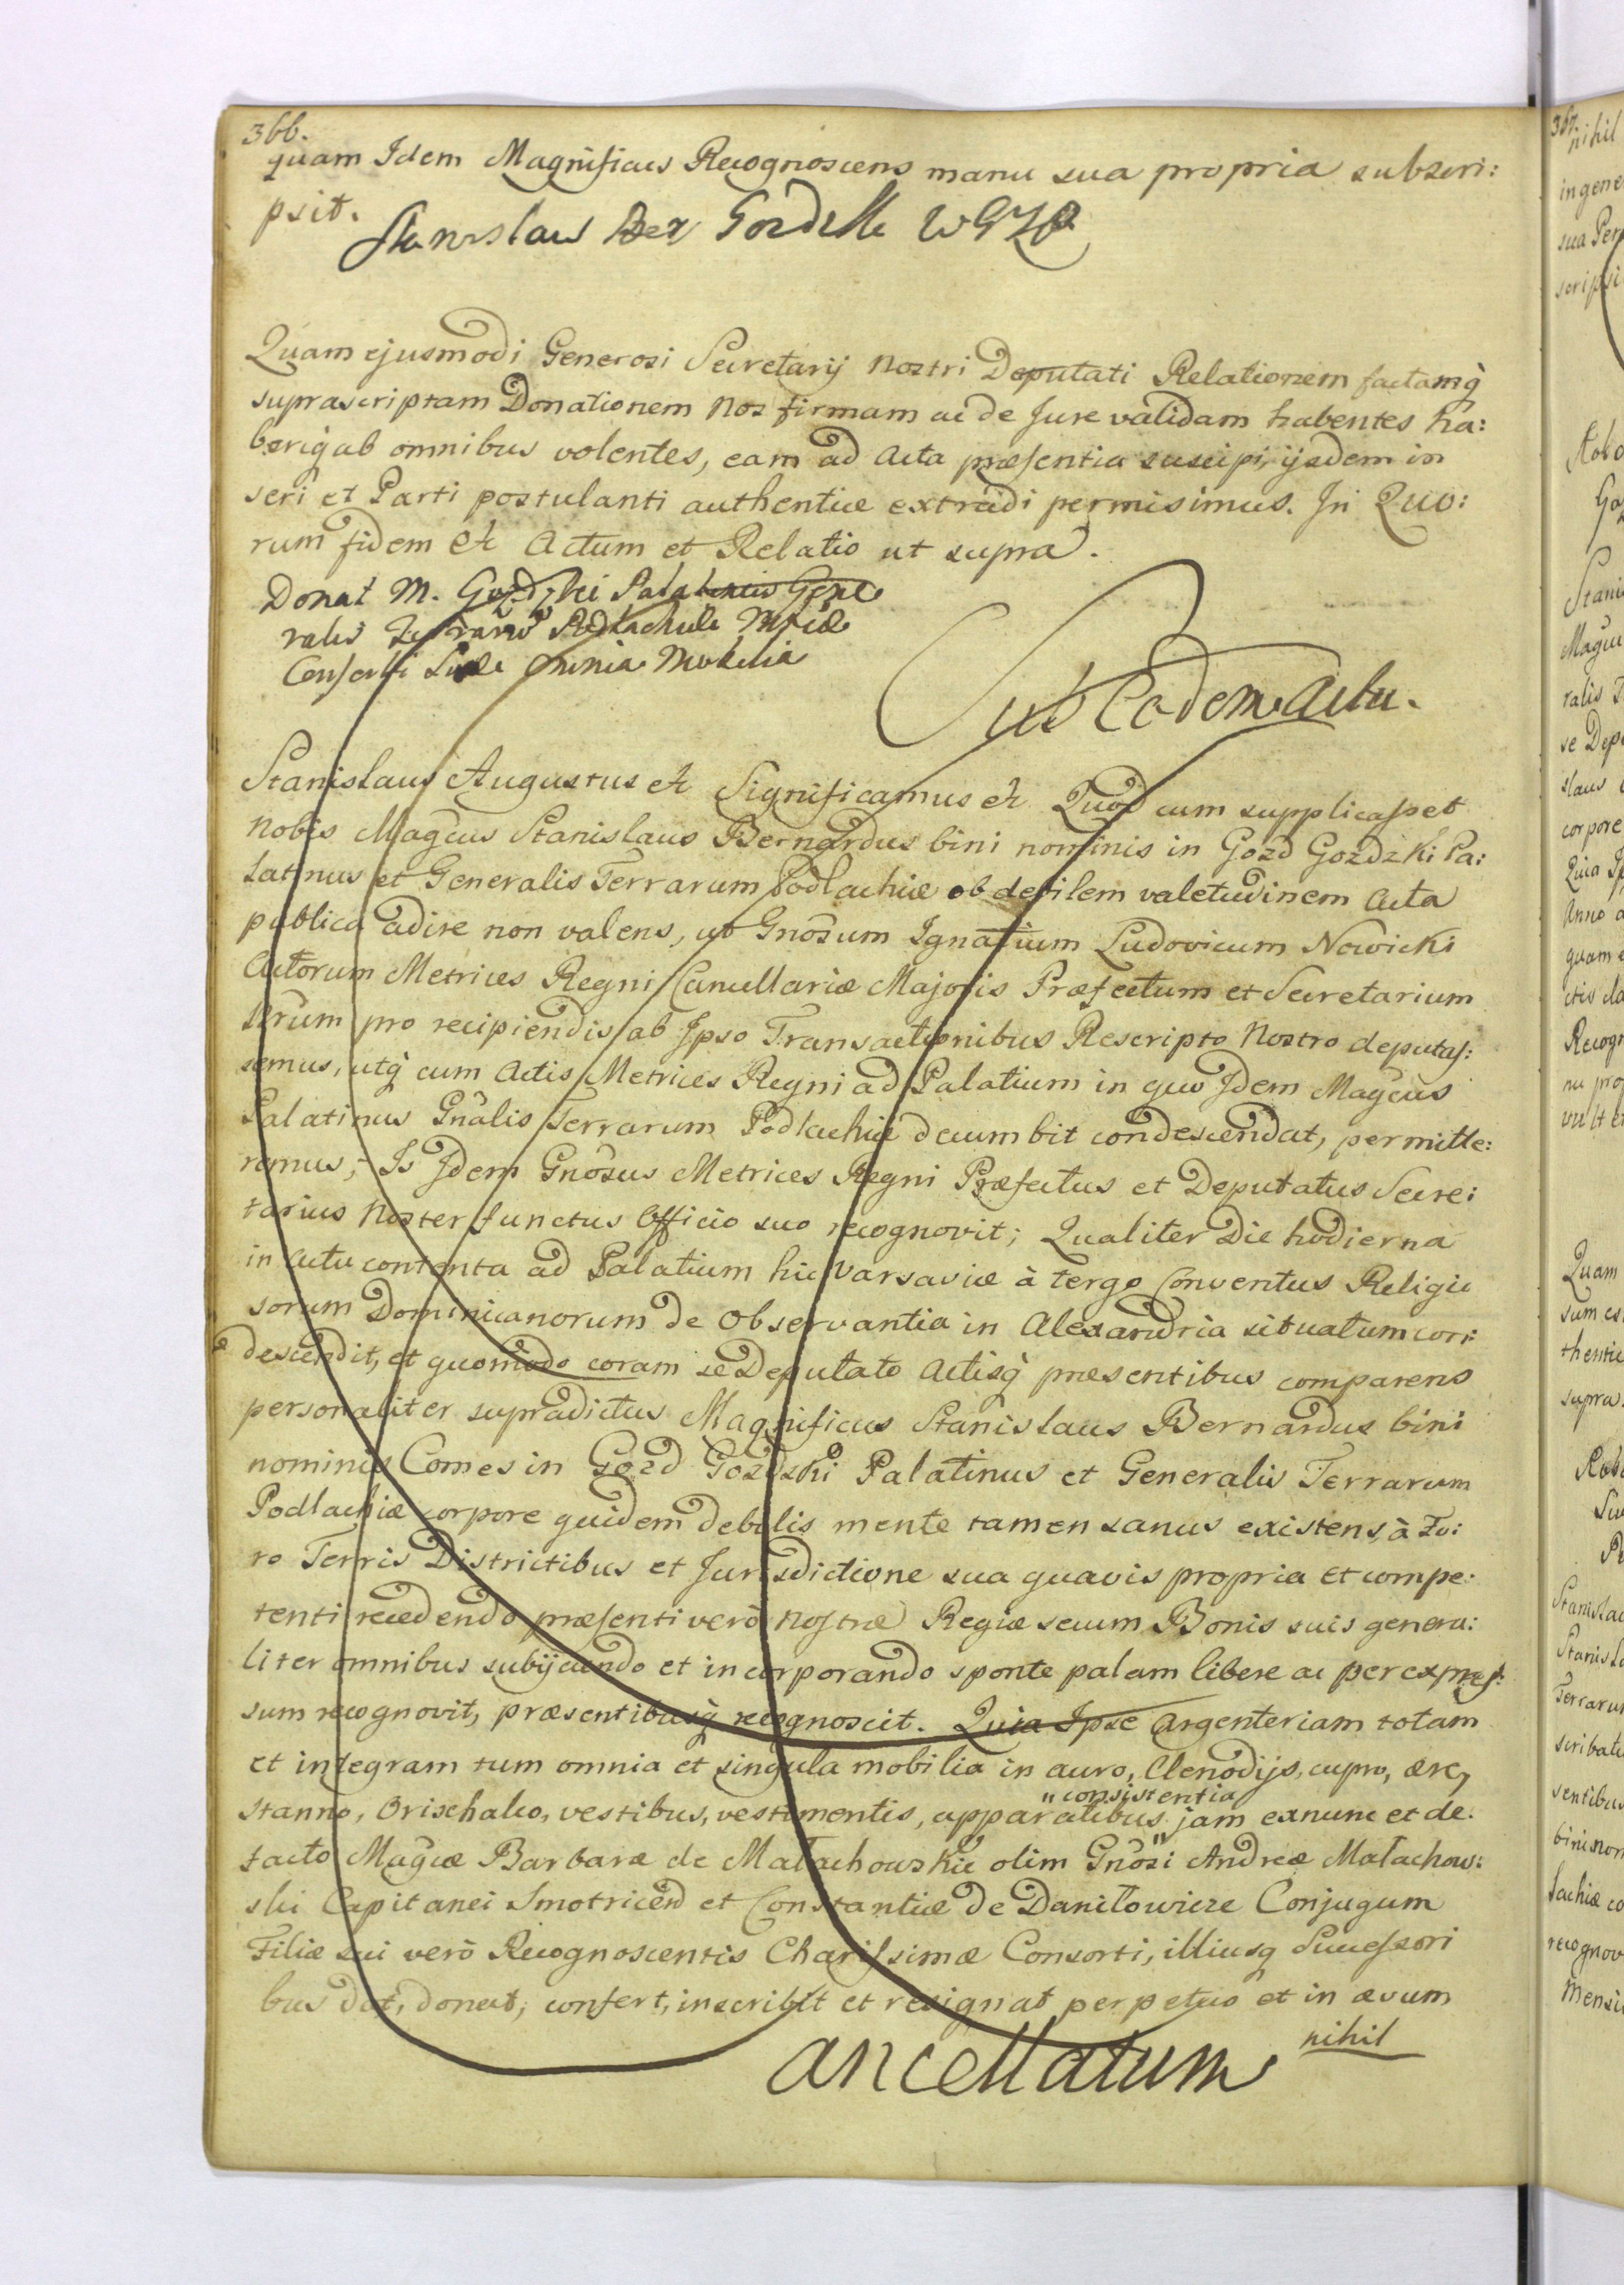 366.
quam Idem Magnificus Recognoscens manu sua propria subscri:
psit.
Stanislaw Ber Gozdzki WGZP
Quam ejusmodi Generosi Secretarij Nostri Deputati Relationem factamq̀
suprascriptam Donationem Nos firmam ac de Jure validam habentes ha:
beriq̀ ab omnibus volentes, eam ad Acta præsentia suscipi, ijsdem in
seri et Parti postulanti authentice extradi permisimus. In Quo:
rum fidem etc Actum et Relatio ut supra.
Donat M. Gozdzki Palatinus Gene
ralis Terrarum Podlachiæ Mficæ
Consorti Suæ Omnia Mobilia
Sub Eodem Actu.
Stanislaus Augustus etc Significamus etc Quod cum supplicasset
Nobis Magcus Stanislaus Bernardus bini nominis in Gozd Gozdzki Pa:
latinus et Generalis Terrarum Podlachiæ ob debilem valetudinem Acta
publica adire non valens, ut Gnosum Ignatium Ludovicum Nowicki
Actorum Metrices Regni Cancellariæ Majoris Præfectum et Secretarium
Nrum pro recipiendis ab Ipso Transactionibus Rescripto Nostro deputas:
semus, utq̀ cum Actis Metrices Regni ad Palatium in quo Idem Magcus
Palatinus Gnalis Terrarum Podlachiæ decumbit condescendat, permitte:
remus; Is Idem Gnosus Metrices Regni Præfectus et Deputatus Secre:
tarius Noster functus Officio suo recognovit; Qualiter Die hodierna
in Actu contenta ad Palatium hic Varsaviæ à tergo Conventus Religio
sorum Dominicanorum de Observantia in Alexandria situatum con:
descendit, et quomodo coram se Deputato Actisq̀ præsentibus comparens
personaliter supradictus Magnificus Stanislaus Bernardus bini
nominis Comes in Gozd Gozdzki Palatinus et Generalis Terrarum
Podlachiæ corpore quidem debilis mente tamen sanus existens, à Fo:
ro Terris Districtibus et Jurisdictione sua quavis propria et compe:
tenti recedendo præsenti verò Nostræ Regiæ secum Bonis suis genera:
liter omnibus subijciendo et incorporando sponte palam libere ac per expres:
sum recognovit, præsentibusq̀ recognoscit. Quia Ipse Argenteriam totam
et integram tum omnia et singula mobilia in auro, Clenodijs, cupro, ære,
"consistentia
stanno, Orischalco, vestibus, vestimentis, apparatibus " jam exnunc et de
facto Magcæ Barbaræ de Małachowskie olim Gnosi Andreæ Małachow:
ski Capitanei Smotricen et Constantiæ de Daniłowicze Conjugum
Filiæ sui verò Recognoscentis Charissimæ Consorti, illiusq Successori
bus dat, donat, confert, inscribit et resignat perpetuo et in ævum
nihil
Cancellatum